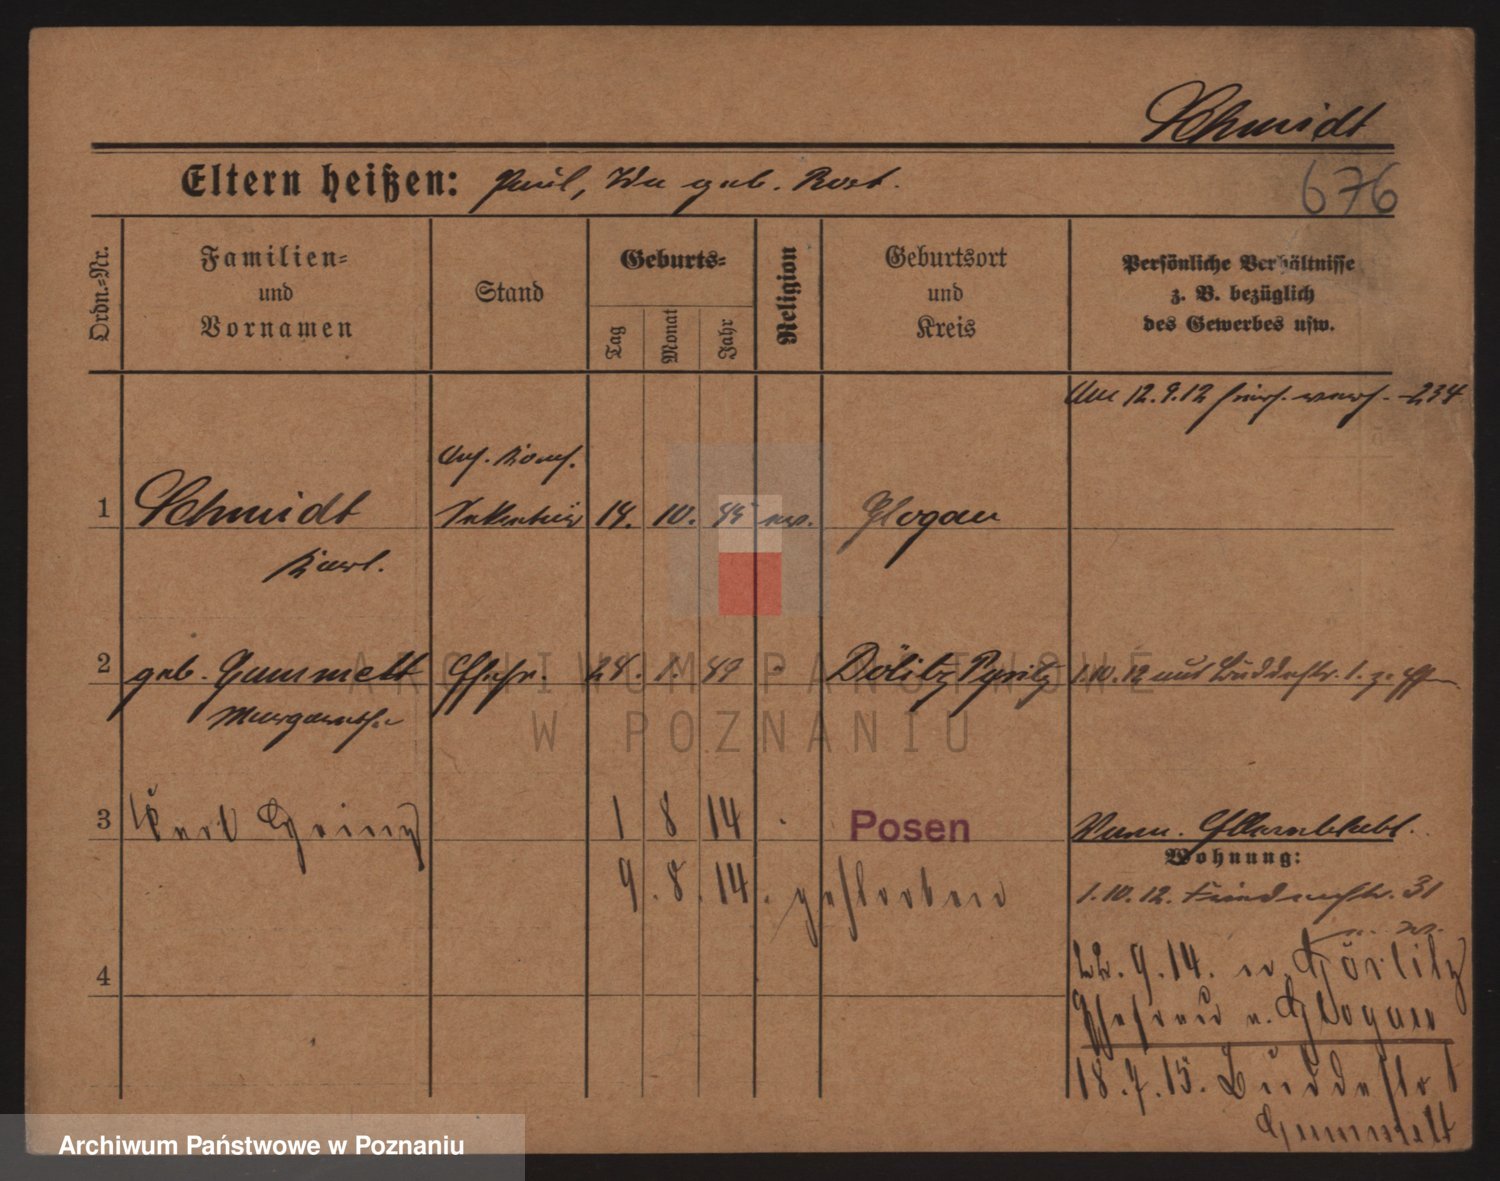 Schmidt
Eltern heißen: Paul, Ida geb. Rost.
676
Ordn.=Nr.
Familien=
und
Vornamen
Stand
Geburts=
Tag
Monat
Jahr
Religion
Geburtsort
und
Kreis
Persönliche Verhältnisse
z. B. bezüglich
des Gewerbes usw.
Am 12.9.12 234
1 Schmidt Sekretär 14. 10. ev. Glogau
Karl.
2 geb. Gummelt Ehefr. 24. 1. 89 " Dölitz Pyritz 1.10.12 aus Buddestr. 1.
Margarethe
3 Karl Heinz 1 8 14 Posen
9. 8. 14. gestorben
Wohnung:
1.10.12. 31
22.9.14. n. Görlitz
Ehefrau n. Glogau
4
18.7.15. Buddestr 1
Gummelt
ARCHIWUM PAŃSTWOWE
W POZNANIU
Archiwum Państwowe w Poznaniu